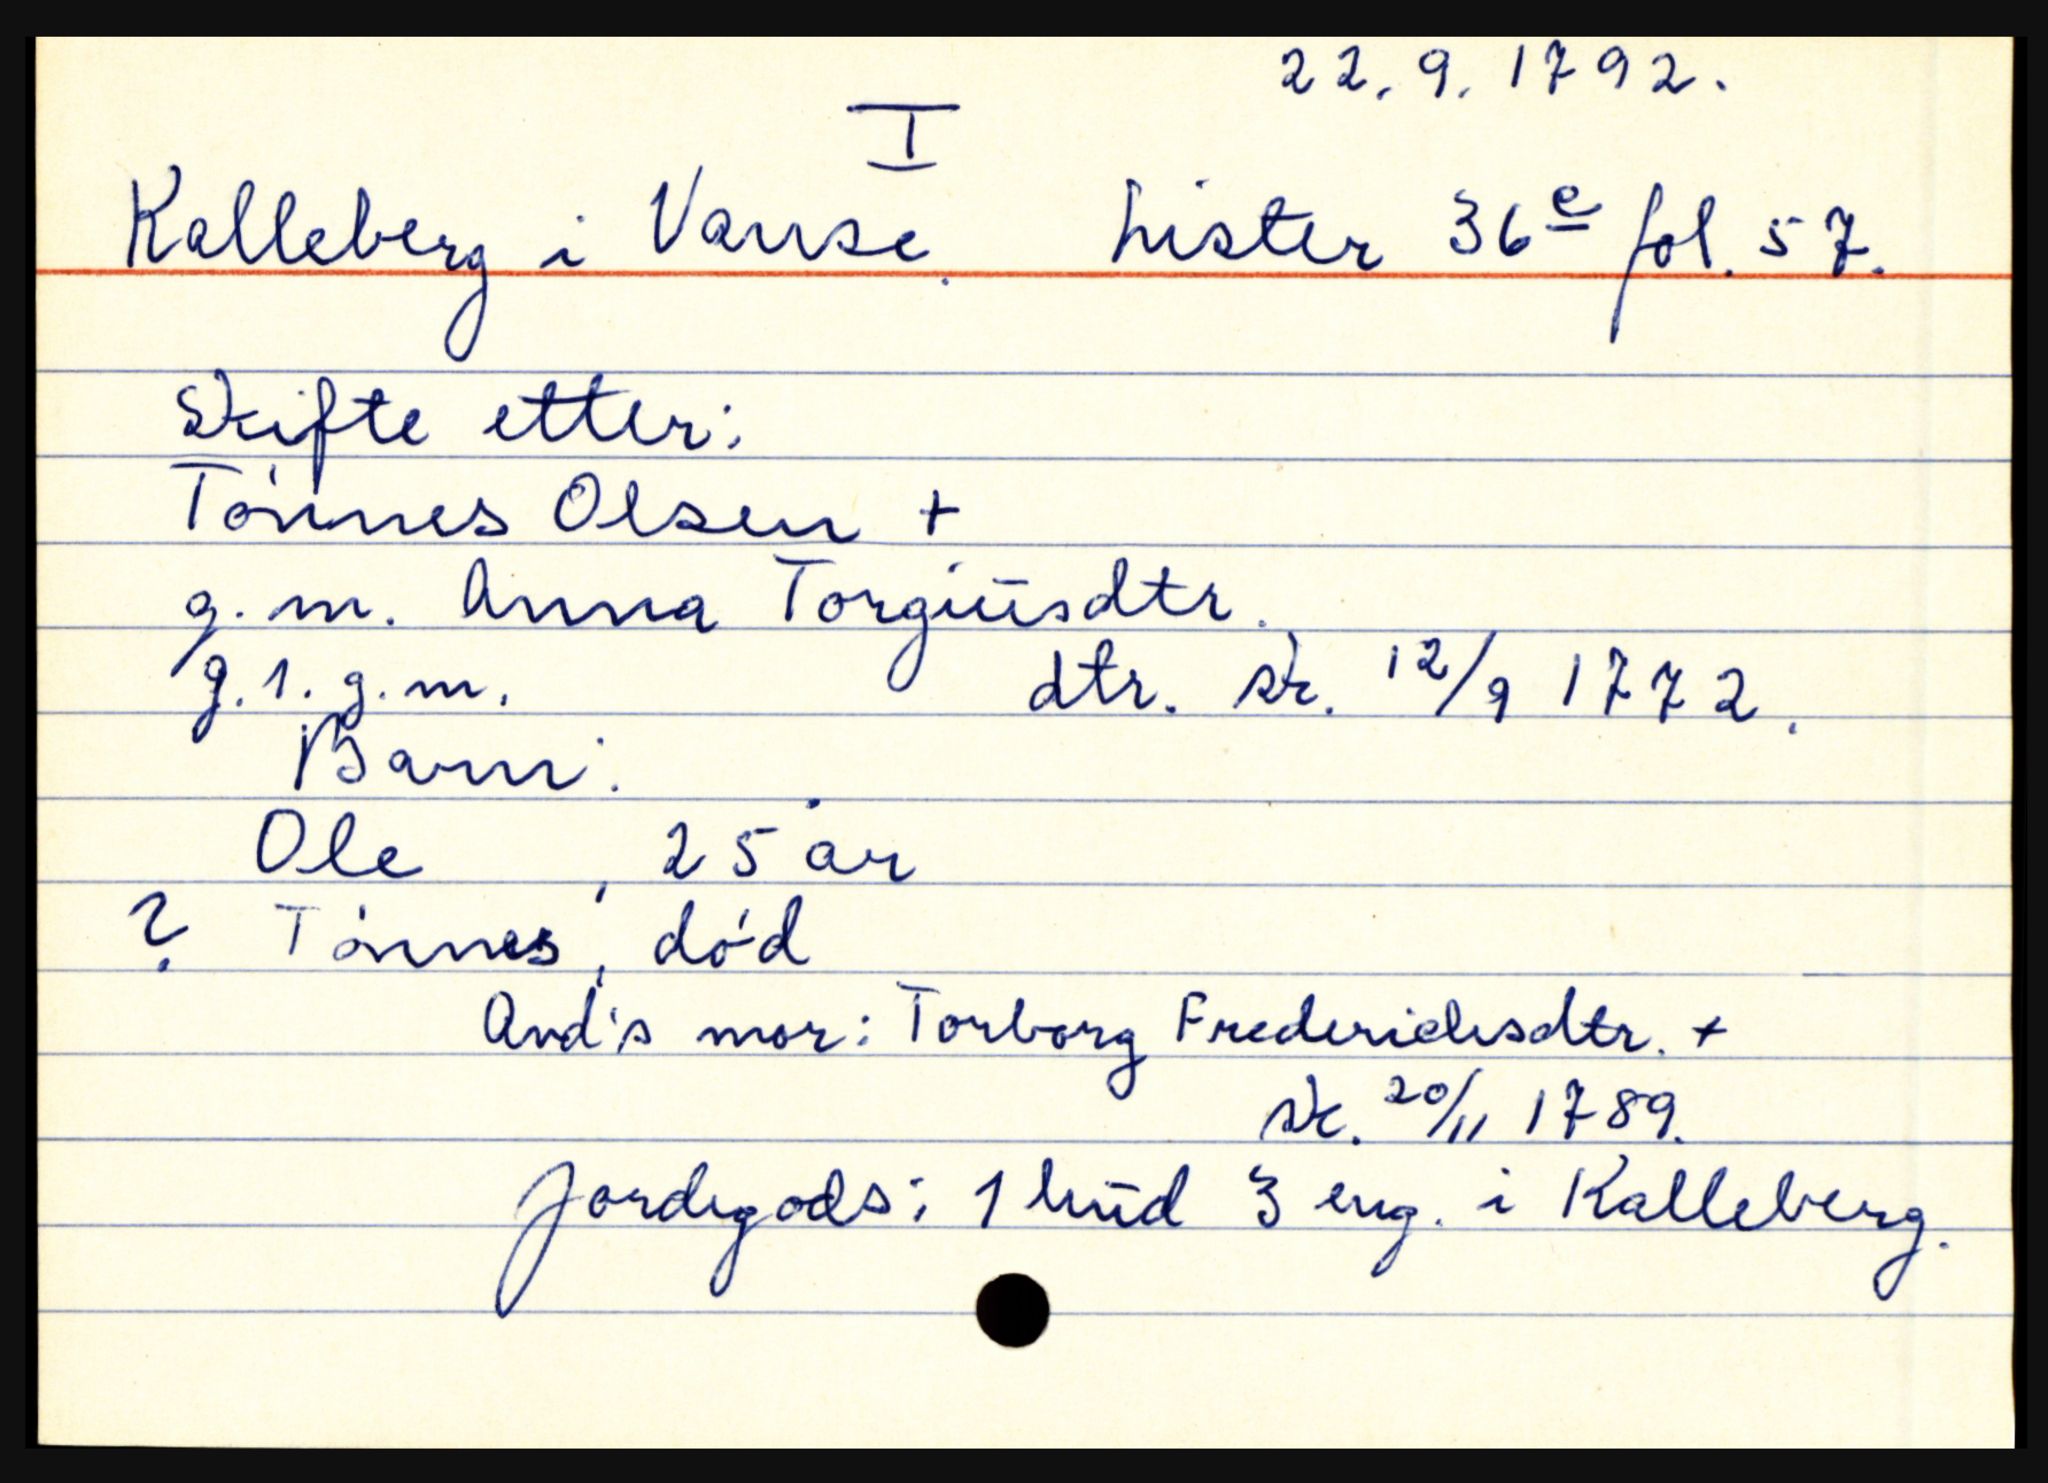 22.9.1792.
I
Kalleberg i Vanse. Lister 36e fol. 57.
Skifte etter:
Tønnes Olsen +
g.m. Anna Torgiusdtr.
g.1.g.m. dtr. sk. 12/9 1772.
Barn:
Ole , 25 år
? Tønnes, død
Avd's mor: Torborg Frederichsdtr. +
sk. 20/11 1789.
Jordegods: 1 hud 3 eng. i Kalleberg.